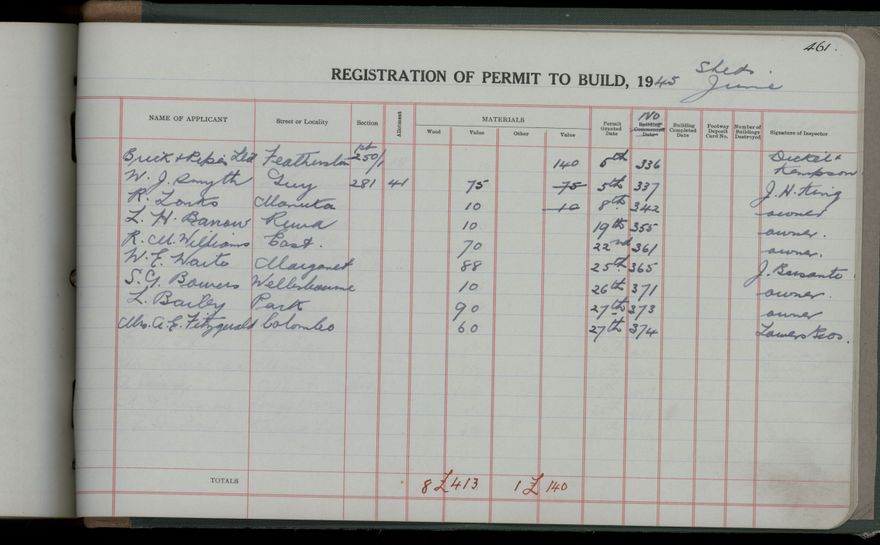 461.
REGISTRATION OF PERMIT TO BUILD, 1945 Sheds.
June
NAME OF APPLICANT Street or Locality Section Allotment MATERIALS Wood Value Other Value Permit Granted Date NO Building Commenced Date Building Completed Date Footway Deposit Card No. Number of Buildings Destroyed Signature of Inspector
Brick & Pipes Ltd Featherston pt 250/1 140 5th 336 Dickel & Kempson
W. J. Smyth Guy 281 41 75 75 5th 337 J. H. King
R. Manuka 10 10 8th 342 owner
L. H. Barrow Rewa 10 19th 355 owner.
R. M. Williams East. 70 22nd 361 owner.
W. E. Waite Margaret 88 25th 365 J.
S. G. Bowers Wellesbourne 10 26th 371 owner.
L. Bailey Park 90 27th 373 owner
Mrs. A. E. Fitzgerald Colombo 60 27th 374 Bros.
TOTALS 8 £413 1 £140